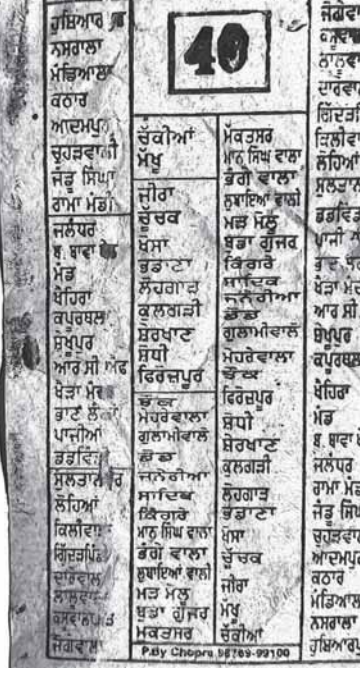 ਹੁਸ਼ਿਆਰ
ਨਸਰਾਲਾ
ਮੰਡਿਆਲਾ
ਕਠਾਰ
ਆਦਮਪੁਰ
ਚੂਹੜਵਾਲੀ
ਜੰਡੂ ਸਿੰਘਾ
ਰਾਮਾ ਮੰਡੀ
ਜਲੰਧਰ
ਬ. ਬਾਵਾ ਖੇਲ
ਮੰਡ
ਖੈਹਿਰਾ
ਕਪੂਰਥਲਾ
ਸ਼ੇਖੂਪੁਰ
ਆਰ ਸੀ ਐਫ
ਖੈੜਾ ਮੰਦਰ
ਭਾਣੋ ਲੰਗਾ
ਪਾਜੀਆਂ
ਡਡਵਿੰਡੀ
ਸੁਲਤਾਨਪੁਰ
ਲੋਹਿਆਂ
ਗਿੱਦੜਪਿੰਡੀ
ਦਾਰੇਵਾਲ
ਜੋਗੇਵਾਲਾ
40
ਚੱਕੀਆਂ
ਮੱਖੂ
ਜੀਰਾ
ਚੂੰਚਕ
ਖੋਸਾ
ਭਡਾਣਾ
ਲੋਹਗੜ
ਕੁਲਗੜੀ
ਸ਼ੇਰਖਾਣ
ਸੋਧੀ
ਫਿਰੋਜ਼ਪੁਰ
ਚੌਕ
ਮੋਹਰੇਵਾਲਾ
ਗੁਲਾਮੀਵਾਲੇ
ਡੋਡ
ਜਨੇਰੀਆ
ਸਾਦਿਕ
ਕਿੰਗਰੇ
ਮਾਨ ਸਿੰਘ ਵਾਲਾ
ਭੰਗੇ ਵਾਲਾ
ਲੁਬਾਇਆਂ ਵਾਲੀ
ਮੜ ਮੱਲੂ
ਬੁਡਾ ਗੁੱਜਰ
ਮੱਕਤਸਰ
ਮੱਕਤਸਰ
ਮਾਨ ਸਿੰਘ ਵਾਲਾ
ਭੰਗੇ ਵਾਲਾ
ਲੁਬਾਇਆਂ ਵਾਲੀ
ਮੜ ਮੱਲੂ
ਬੁਡਾ ਗੁੱਜਰ
ਕਿੰਗਰੇ
ਸਾਦਿਕ
ਜਨੇਰੀਆ
ਡੋਡ
ਗੁਲਾਮੀਵਾਲੇ
ਮੋਹਰੇਵਾਲਾ
ਚੌਕ
ਫਿਰੋਜ਼ਪੁਰ
ਸੋਧੀ
ਸ਼ੇਰਖਾਣ
ਕੁਲਗੜੀ
ਲੋਹਗੜ
ਭਡਾਣਾ
ਖੋਸਾ
ਚੂੰਚਕ
ਜੀਰਾ
ਮੱਖੂ
ਚੱਕੀਆਂ
P.By Chopra 98769-99100
ਲੋਹਿਆਂ
ਆਰ ਸੀ
ਸ਼ੇਖੂਪੁਰ
ਕਪੂਰਥਲਾ
ਖੈਹਿਰਾ
ਮੰਡ
ਬ. ਬਾਵਾ
ਜਲੰਧਰ
ਰਾਮਾ ਮੰਡੀ
ਜੰਡੂ ਸਿੰਘਾ
ਆਦਮਪੁਰ
ਕਠਾਰ
ਮੰਡਿਆਲਾ
ਨਸਰਾਲਾ
ਹੁਸ਼ਿਆਰਪੁਰ